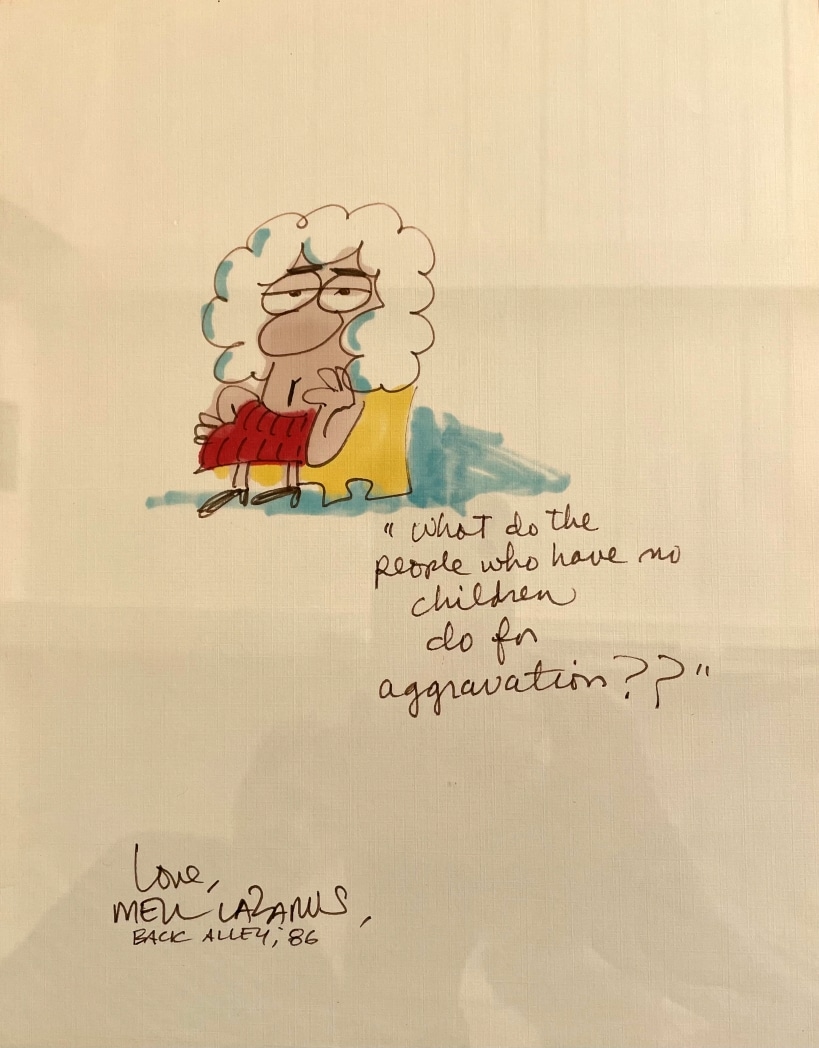 "What do the
people who have no
children
do for
aggravation??"
Love,
MELL LAZARUS,
BACK ALLEY, '86